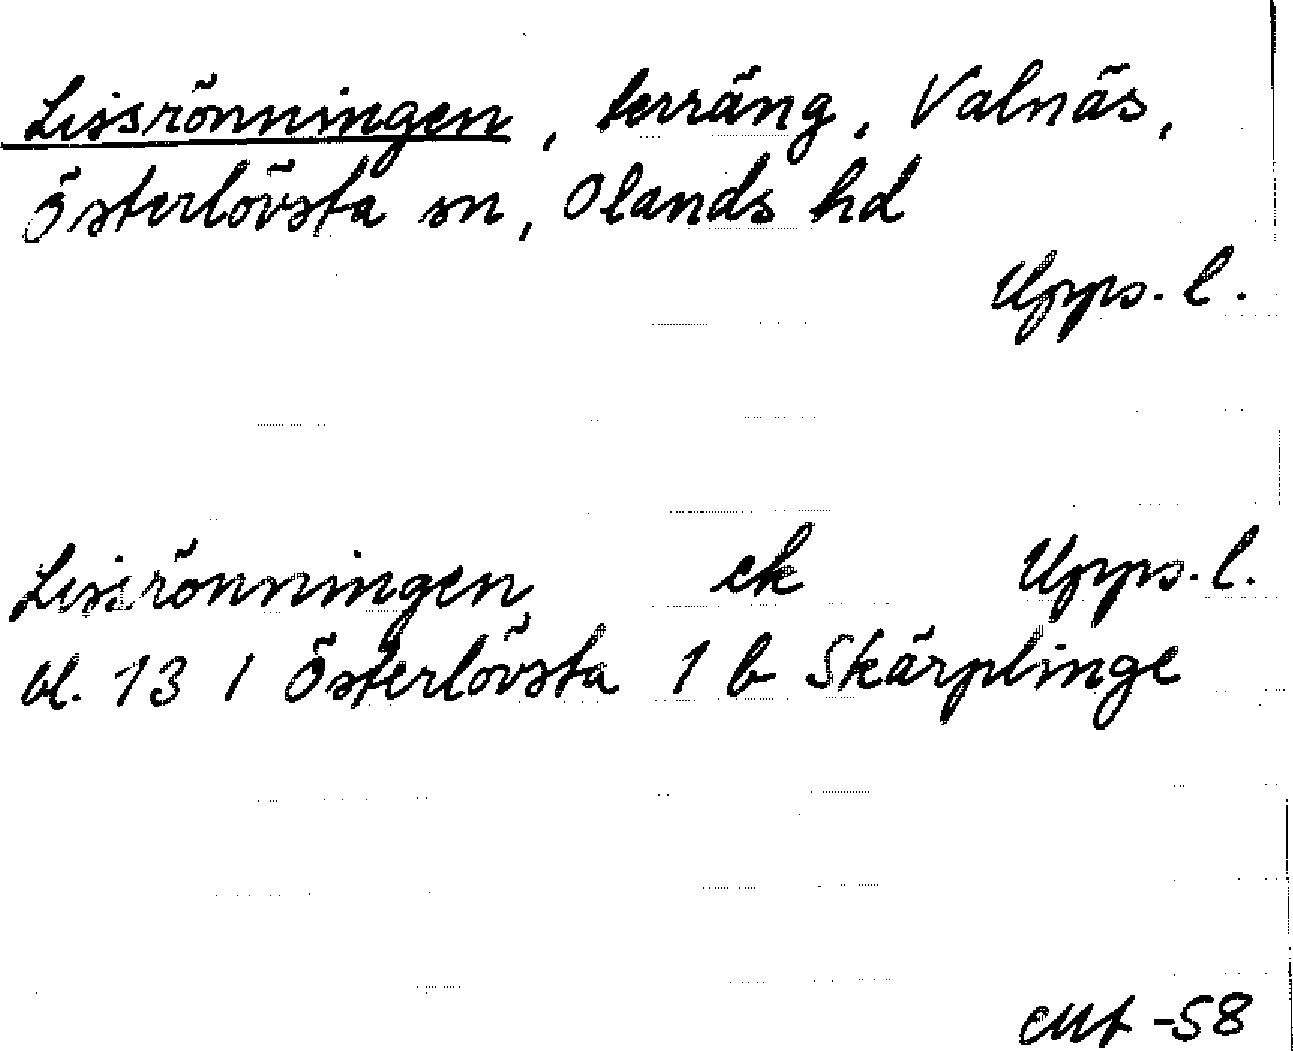 Lissrönningen, terräng, Valnäs,
Österlövsta sn, Olands hd
Upps. l.
Lissrönningen ek Upps. l.
bl. 13 I Österlövsta 1 b Skärplinge
-58